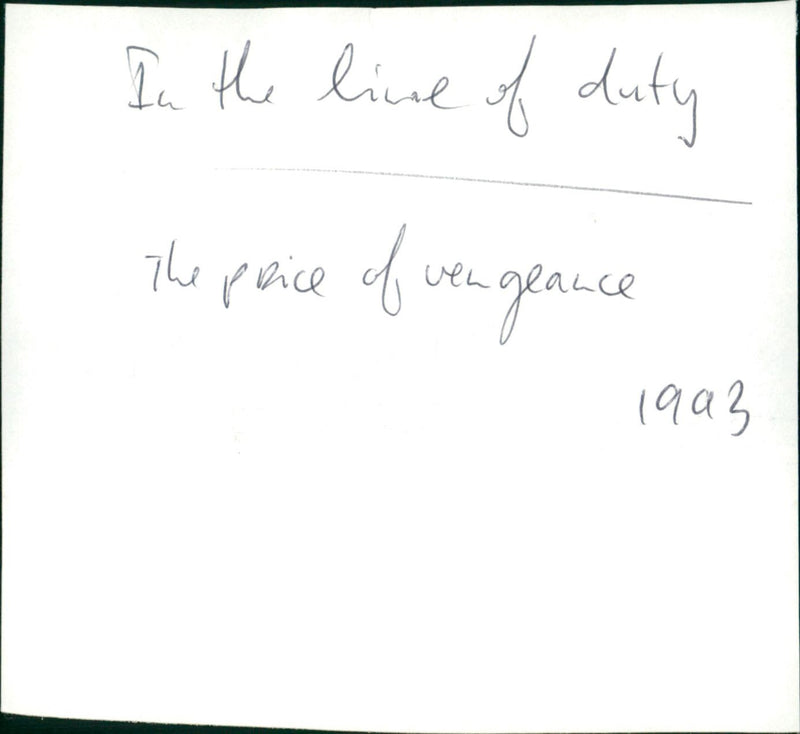 In the line of duty
The price of vengeance
1993